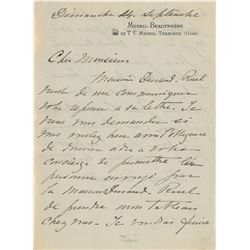 Dimanche 24 Septembre
MESNIL-BEAUFRESNE
PAR LE MESNIL-THERIBUS (OISE)
Cher Monsieur
Monsieur Durand-Ruel
vient de me communiquer
votre réponse à sa lettre. Je
vais vous demander si
vous voulez bien avoir l'obligeance
de donner ordre à votre
concierge de permettre à la
personne envoyé par
la Maison Durand-Ruel
de prendre mon tableau
chez vous. Je voudrais